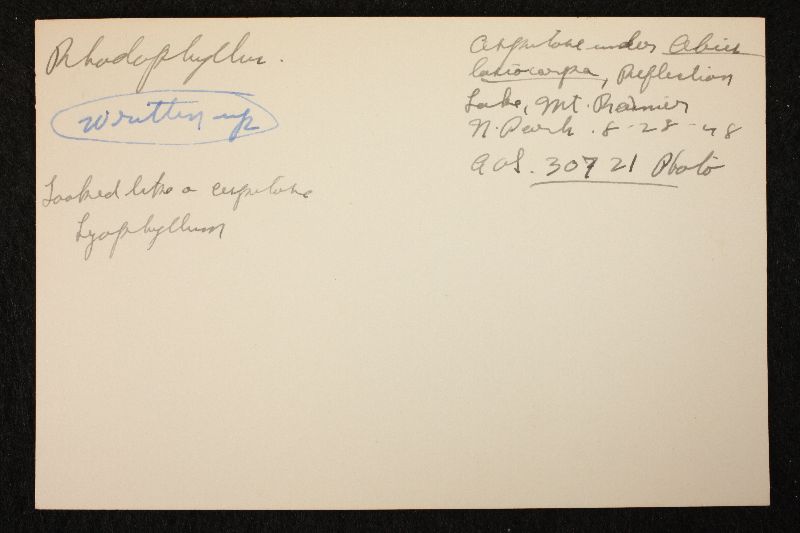 Rhodophyllus.
Written up
Looked like a cespitose
Lyophyllum
Cespitose under Abies
lasiocarpa, Reflection
Lake, Mt. Rainier
N. Park. 8-28-48
AHS. 30721 Photo